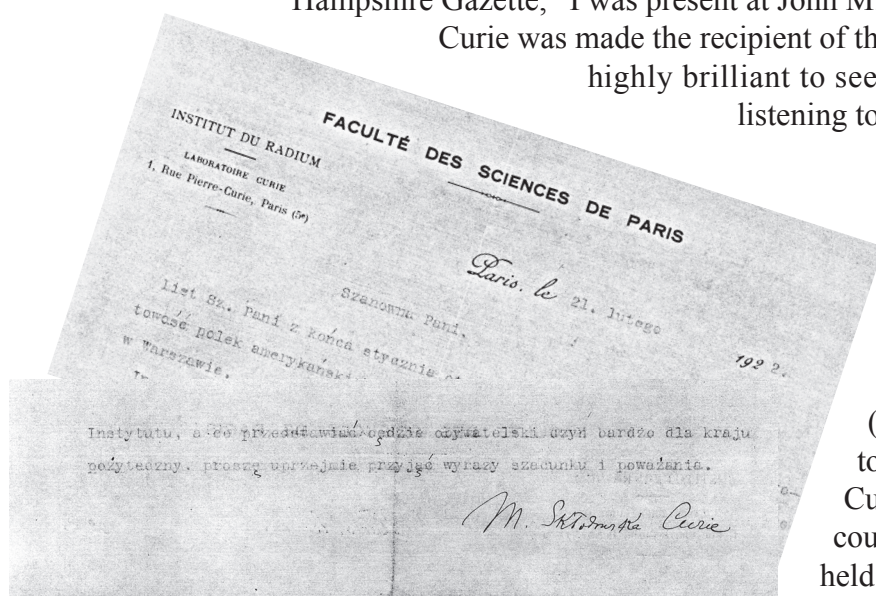 Hampshire Gazette, "I was present at John M
Curie was made the recipient of th
highly brilliant to see
listening to
INSTITUT DU RADIUM
LABORATOIRE CURIE
1, Rue Pierre-Curie, Paris (5e)
FACULTÉ DES SCIENCES DE PARIS
Paris, le 21. lutego 1922.
Szanowna Pani,
List Sz. Pani z końca stycznia
towość polek amerykański
w Warszawie.
Instytutu, a co przedstawiać będzie obywatelski czyn bardzo dla kraju
pożyteczny, proszę uprzejmie przyjąć wyrazy szacunku i poważania.
M. Skłodowska Curie
(
to
Cu
cou
held